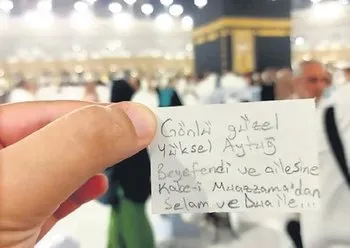 Gönlü güzel
Yüksel Aytuğ
Beyefendi ve ailesine
Kabe-i Muazzama'dan
Selam ve Dua ile...